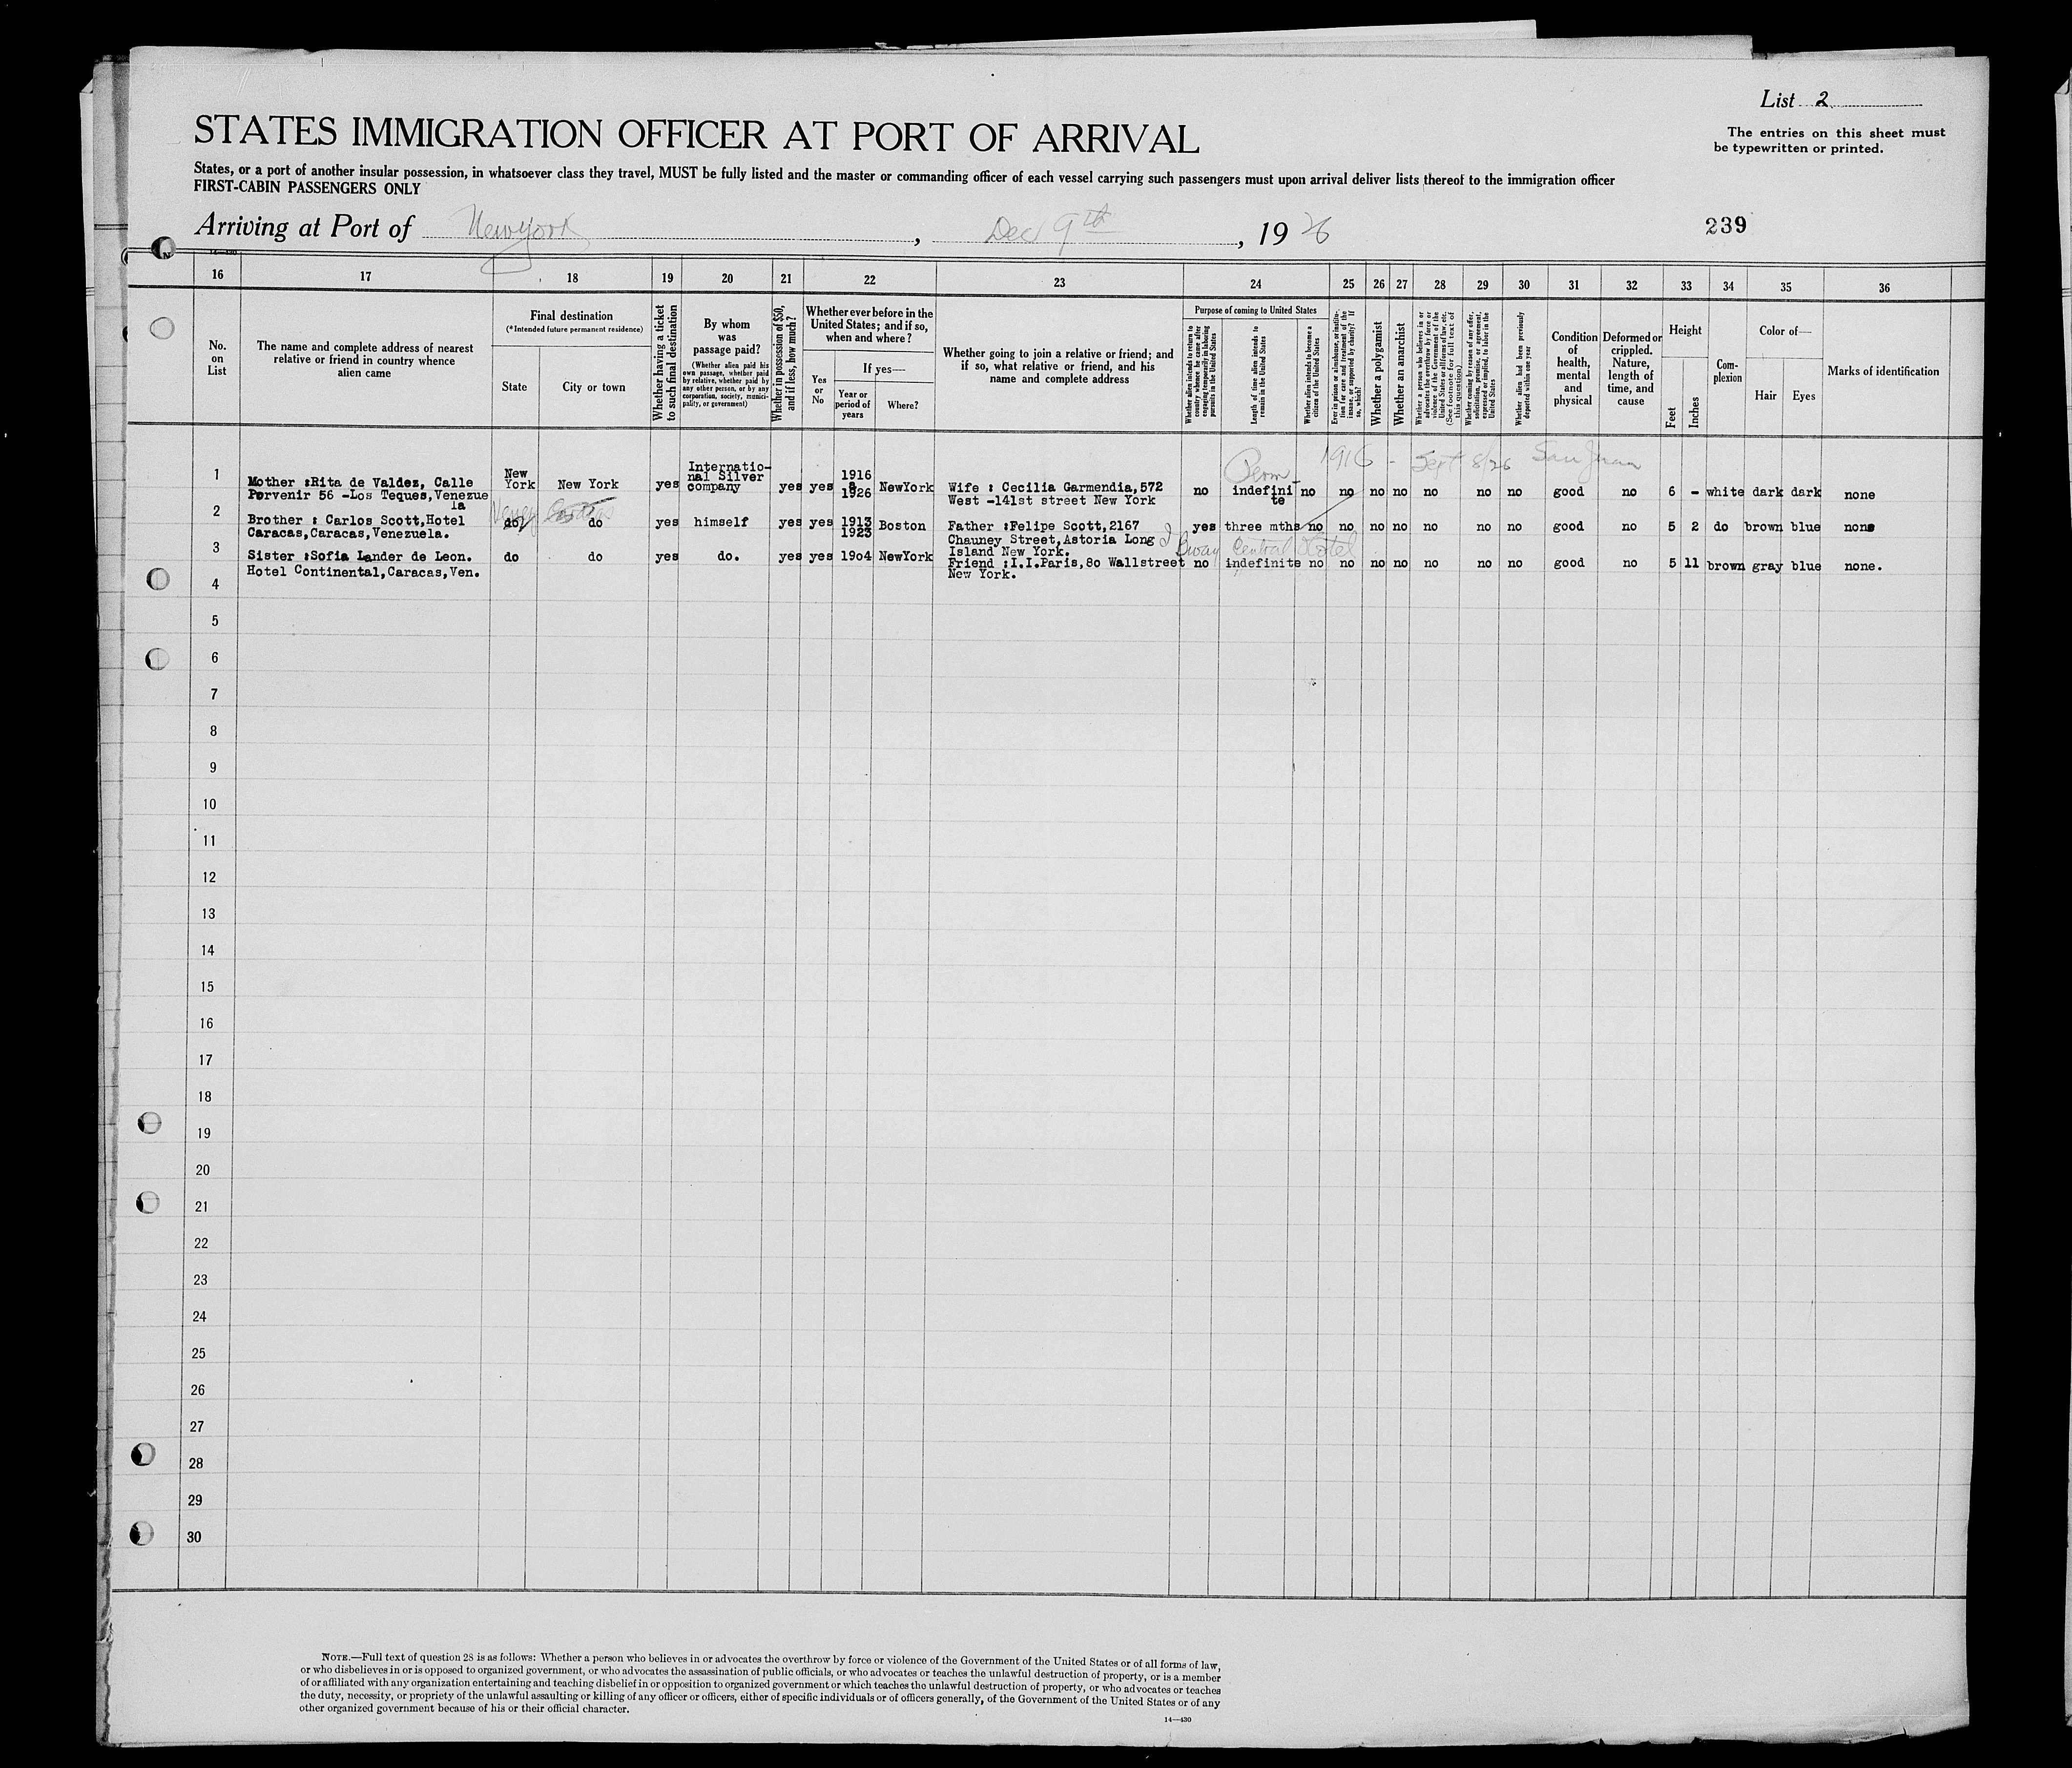 List 2
STATES IMMIGRATION OFFICER AT PORT OF ARRIVAL
The entries on this sheet must
be typewritten or printed.
States, or a port of another insular possession, in whatsoever class they travel, MUST be fully listed and the master or commanding officer of each vessel carrying such passengers must upon arrival deliver lists thereof to the immigration officer
FIRST-CABIN PASSENGERS ONLY
Arriving at Port of New York, Dec 9th, 1926
239
16 17 18 19 20 21 22 23 24 25 26 27 28 29 30 31 32 33 34 35 36
No. on List
The name and complete address of nearest
relative or friend in country whence
alien came
Final destination
(*Intended future permanent residence)
State
City or town
Whether having a ticket
to such final destination
By whom
was
passage paid?
(Whether alien paid his
own passage, whether paid
by relative, whether paid by
any other person, or by any
corporation, society, munici-
pality, or government)
Whether in possession of $50,
and if less, how much?
Whether ever before in the
United States; and if so,
when and where?
Yes
or
No
If yes—
Year or
period of
years
Where?
Whether going to join a relative or friend; and
if so, what relative or friend, and his
name and complete address
Purpose of coming to United States
Whether alien intends to return to
country whence he came after
engaging temporarily in laboring
pursuits in the United States
Length of time alien intends to
remain in the United States
Whether alien intends to become a
citizen of the United States
Ever in prison or almshouse, or institu-
tion for care and treatment of the
insane, or supported by charity? If
so, which?
Whether a polygamist
Whether an anarchist
Whether a person who believes in or
advocates the overthrow by force or
violence of the Government of the
United States or all forms of law, etc.
(See footnote for full text of
this question)
Whether coming by reason of any offer,
solicitation, promise, or agreement,
expressed or implied, to labor in the
United States
Whether alien had been previously
deported within one year
Condition
of
health,
mental
and
physical
Deformed or
crippled.
Nature,
length of
time, and
cause
Height
Feet
Inches
Com-
plexion
Color of—
Hair
Eyes
Marks of identification
Perm 1916 - Sept 8/26 San Juan
1 Mother :Rita de Valdez, Calle
Porvenir 56 -Los Teques, Venezue
la
New
York
New York yes
Internatio-
nal Silver
company
yes yes
1916
&
1926
NewYork
Wife : Cecilia Garmendia,572
West -141st street New York
no
indefini
te
no no no no no no no good no 6 - white dark dark none
2 Brother : Carlos Scott,Hotel
Caracas,Caracas,Venezuela.
do do yes himself yes yes
1913
1923
Boston
Father :Felipe Scott,2167
Chauney Street,Astoria Long
Island New York.
yes three mths no no no no no no no good no 5 2 do brown blue none
Bway Central Hotel
3 Sister :Sofia Lander de Leon.
Hotel Continental,Caracas,Ven.
do do yes do. yes yes 19o4 NewYork
Friend :I.I.Paris,8o Wallstreet
New York.
no indefinite no no no no no no no good no 5 11 brown gray blue none.
4
5
6
7
8
9
10
11
12
13
14
15
16
17
18
19
20
21
22
23
24
25
26
27
28
29
30
NOTE.—Full text of question 28 is as follows: Whether a person who believes in or advocates the overthrow by force or violence of the Government of the United States or of all forms of law,
or who disbelieves in or is opposed to organized government, or who advocates the assassination of public officials, or who advocates or teaches the unlawful destruction of property, or is a member
of or affiliated with any organization entertaining and teaching disbelief in or opposition to organized government or which teaches the unlawful destruction of property, or who advocates or teaches
the duty, necessity, or propriety of the unlawful assaulting or killing of any officer or officers, either of specific individuals or of officers generally, of the Government of the United States or of any
other organized government because of his or their official character.
14—430